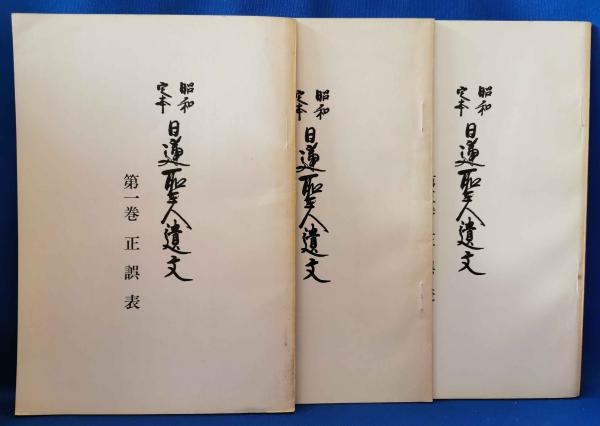 昭和
定本
日蓮聖人遺文
第一巻 正誤表
昭和
定本
日蓮聖人遺文
昭和
定本
日蓮聖人遺文